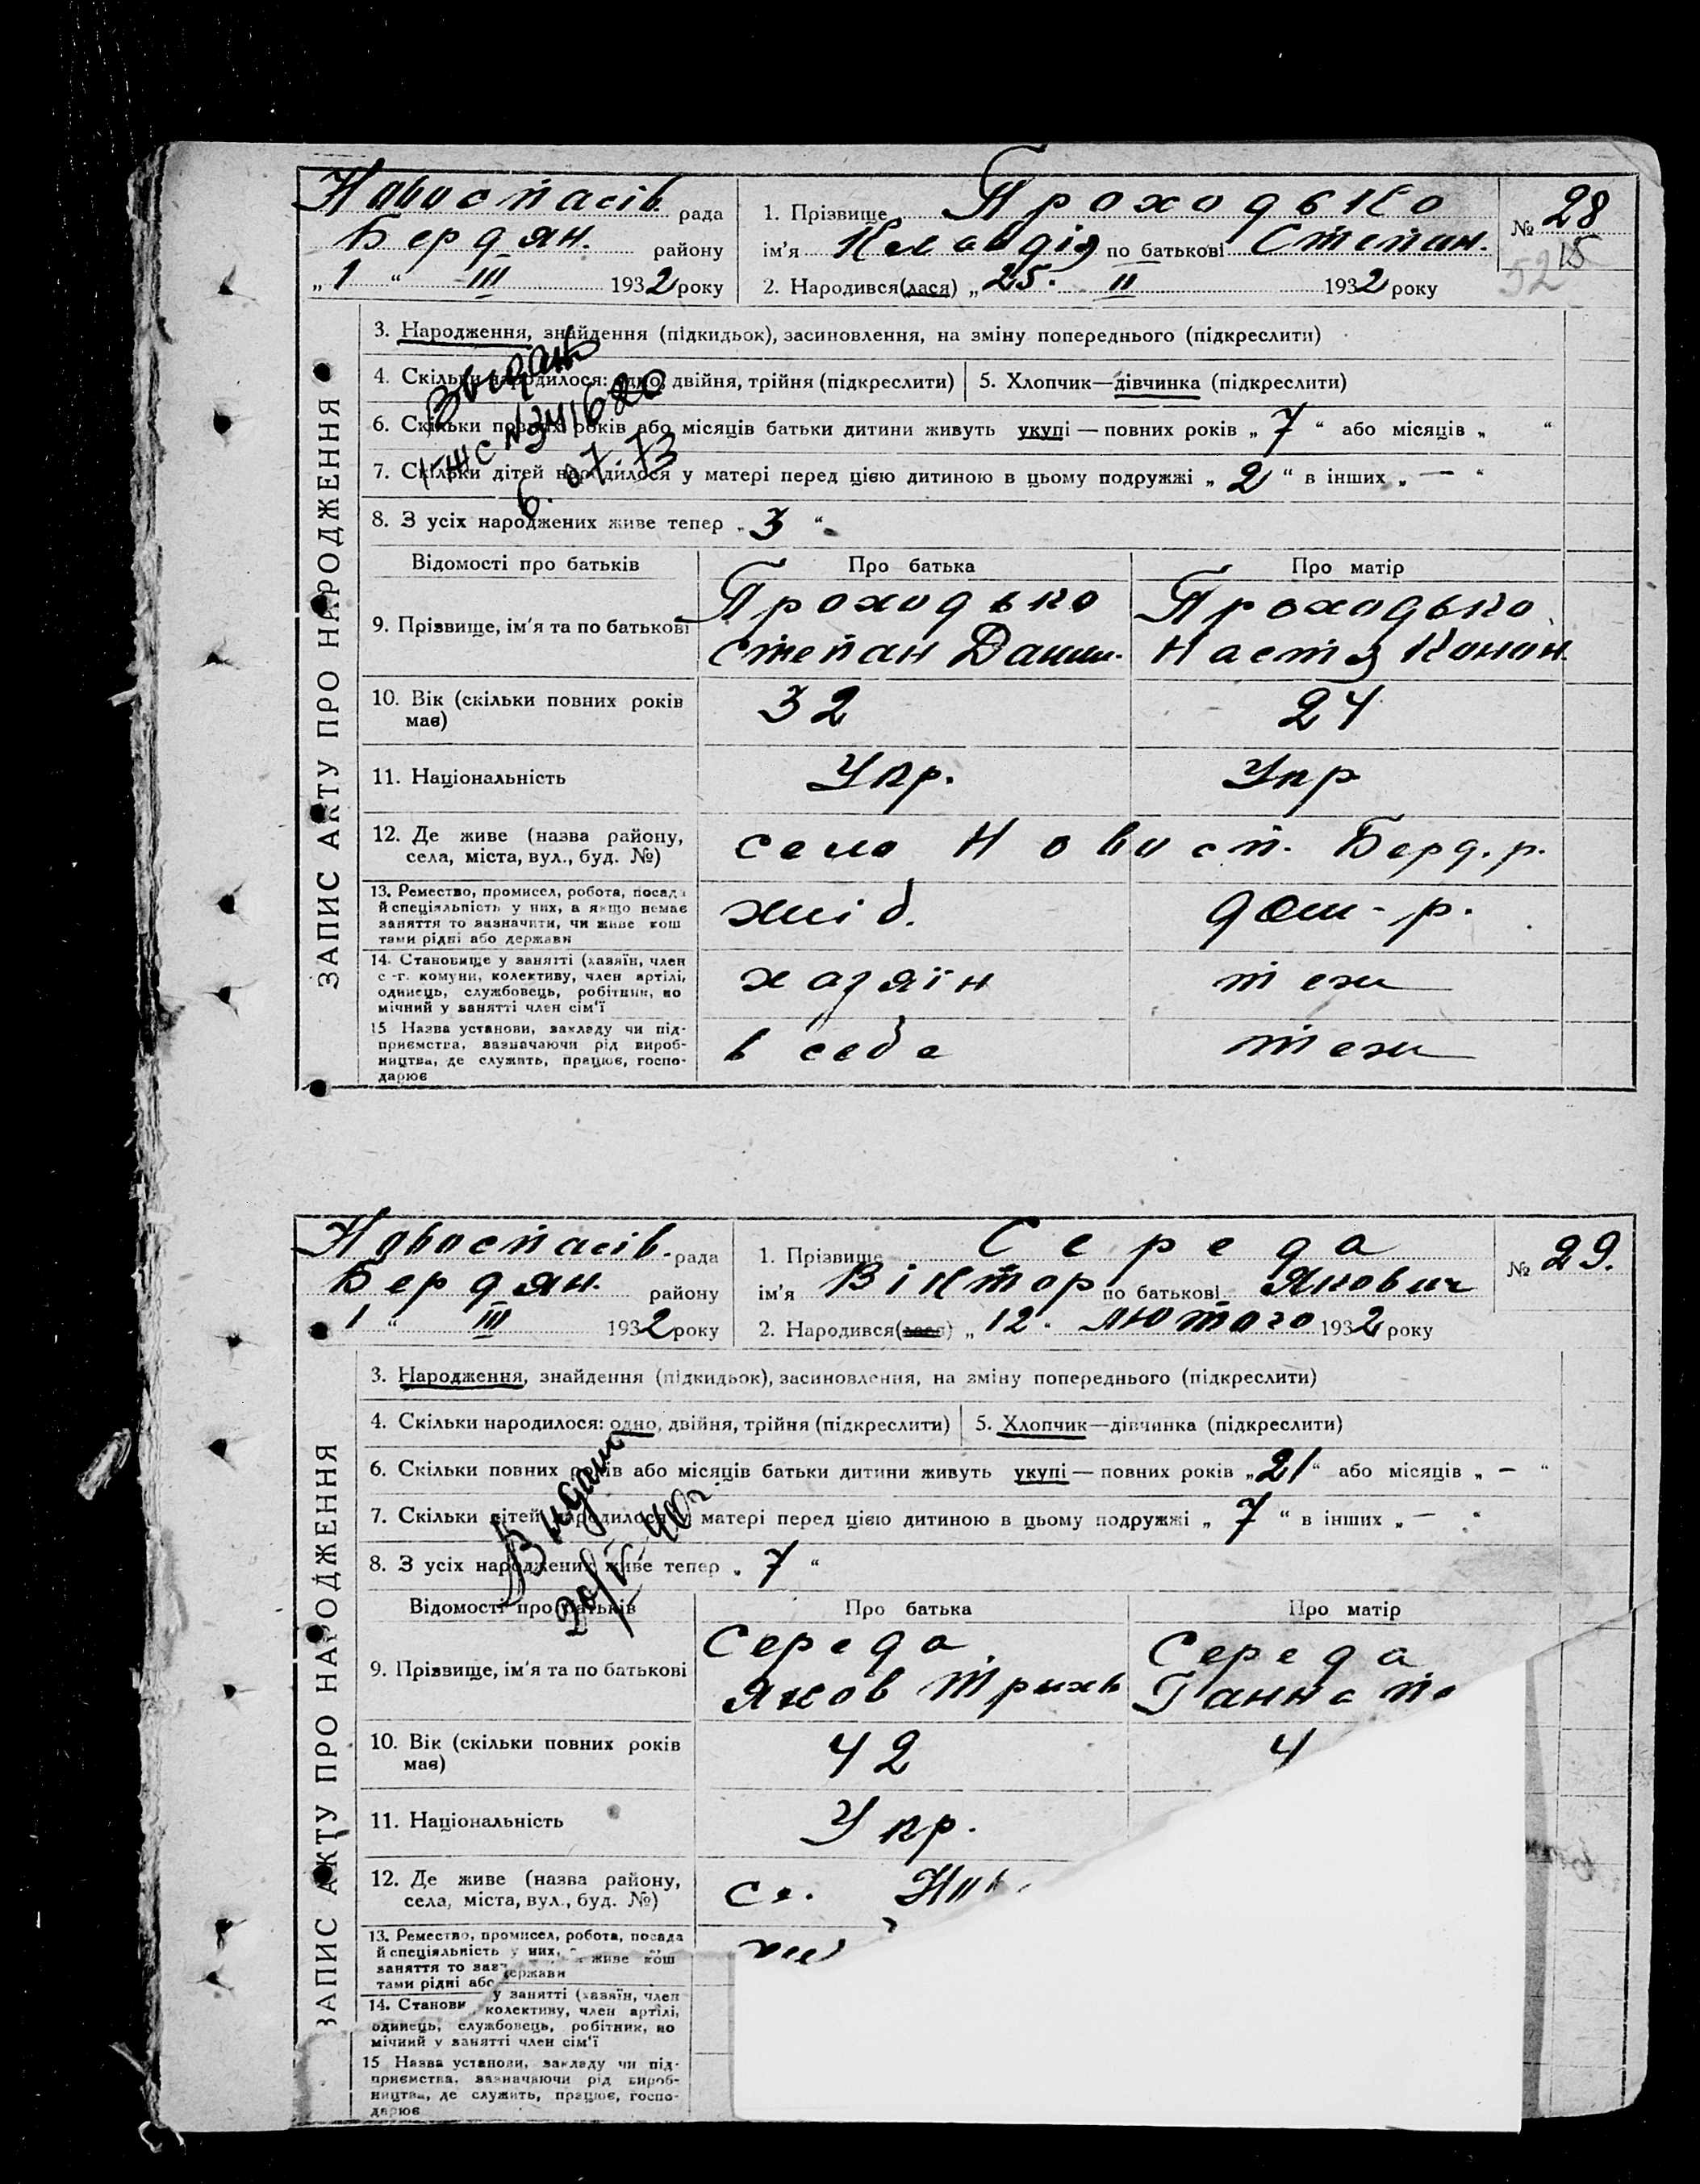 Новоспасів. рада
Бердян. району
„1“ III 1932 року
1. Прізвище Проходько
ім'я Клавдія по батькові Степан.
2. Народився(лася) „25. II 1932 року
№ 28
52 15
ЗАПИС АКТУ ПРО НАРОДЖЕННЯ
3. Народження, знайдення (підкидьок), засиновлення, на зміну попереднього (підкреслити)
4. Скільки народилося: одно, двійня, трійня (підкреслити)
5. Хлопчик—дівчинка (підкреслити)
6. Скільки повних років або місяців батьки дитини живуть укупі — повних років „7“ або місяців „ “
7. Скільки дітей народилося у матері перед цією дитиною в цьому подружжі „2“ в інших „—“
8. З усіх народжених живе тепер „3“
6. 07. 73
Відомості про батьків Про батька Про матір
9. Прізвище, ім'я та по батькові
Проходько
Степан Данил.
Проходько
Настя Конон.
10. Вік (скільки повних років
має)
32 24
11. Національність Укр. Укр
12. Де живе (назва району,
села, міста, вул., буд. №)
село Новосп. Берд. р.
13. Ремество, промисел, робота, посада
й спеціяльність у них, а якщо немає
заняття то зазначити, чи живе кош
тами рідні або держави
хліб. дом-р.
14. Становище у занятті (хазяїн, член
с.-г. комуни, колективу, член артілі,
одинець, службовець, робітник, по
мічний у занятті член сім'ї
хазяїн теж
15 Назва установи, закладу чи під-
приємства, зазначаючи рід вироб-
ництва, де служить, працює, госпо-
дарює
в себе теж
Новоспасів. рада
Бердян. району
1 “ III 1932 року
1. Прізвище Середа
ім'я Віктор по батькові Якович
2. Народився(лася) „12. лютого 1932 року
№ 29.
ЗАПИС АКТУ ПРО НАРОДЖЕННЯ
3. Народження, знайдення (підкидьок), засиновлення, на зміну попереднього (підкреслити)
4. Скільки народилося: одно, двійня, трійня (підкреслити)
5. Хлопчик—дівчинка (підкреслити)
6. Скільки повних років або місяців батьки дитини живуть укупі — повних років „21“ або місяців „—“
7. Скільки дітей народилося у матері перед цією дитиною в цьому подружжі „7“ в інших „—“
8. З усіх народжених живе тепер „7“
Видано
Відомості про батьків Про батька Про матір
9. Прізвище, ім'я та по батькові
Середа
Яков Трихв
Середа
Ганна
10. Вік (скільки повних років
має)
42 4
11. Національність Укр.
12. Де живе (назва району,
села, міста, вул., буд. №)
се. Нов
13. Ремество, промисел, робота, посада
й спеціяльність у них, живе кош
заняття то
тами рідні або держави
14. Станови у занятті (хазяїн, член
колективу, член артілі,
одинець, службовець, робітник, по
мічний у занятті член сім'ї
15 Назва установи, закладу чи під-
приємства, зазначаючи рід вироб-
ництва, де служить, працює, госпо-
дарює